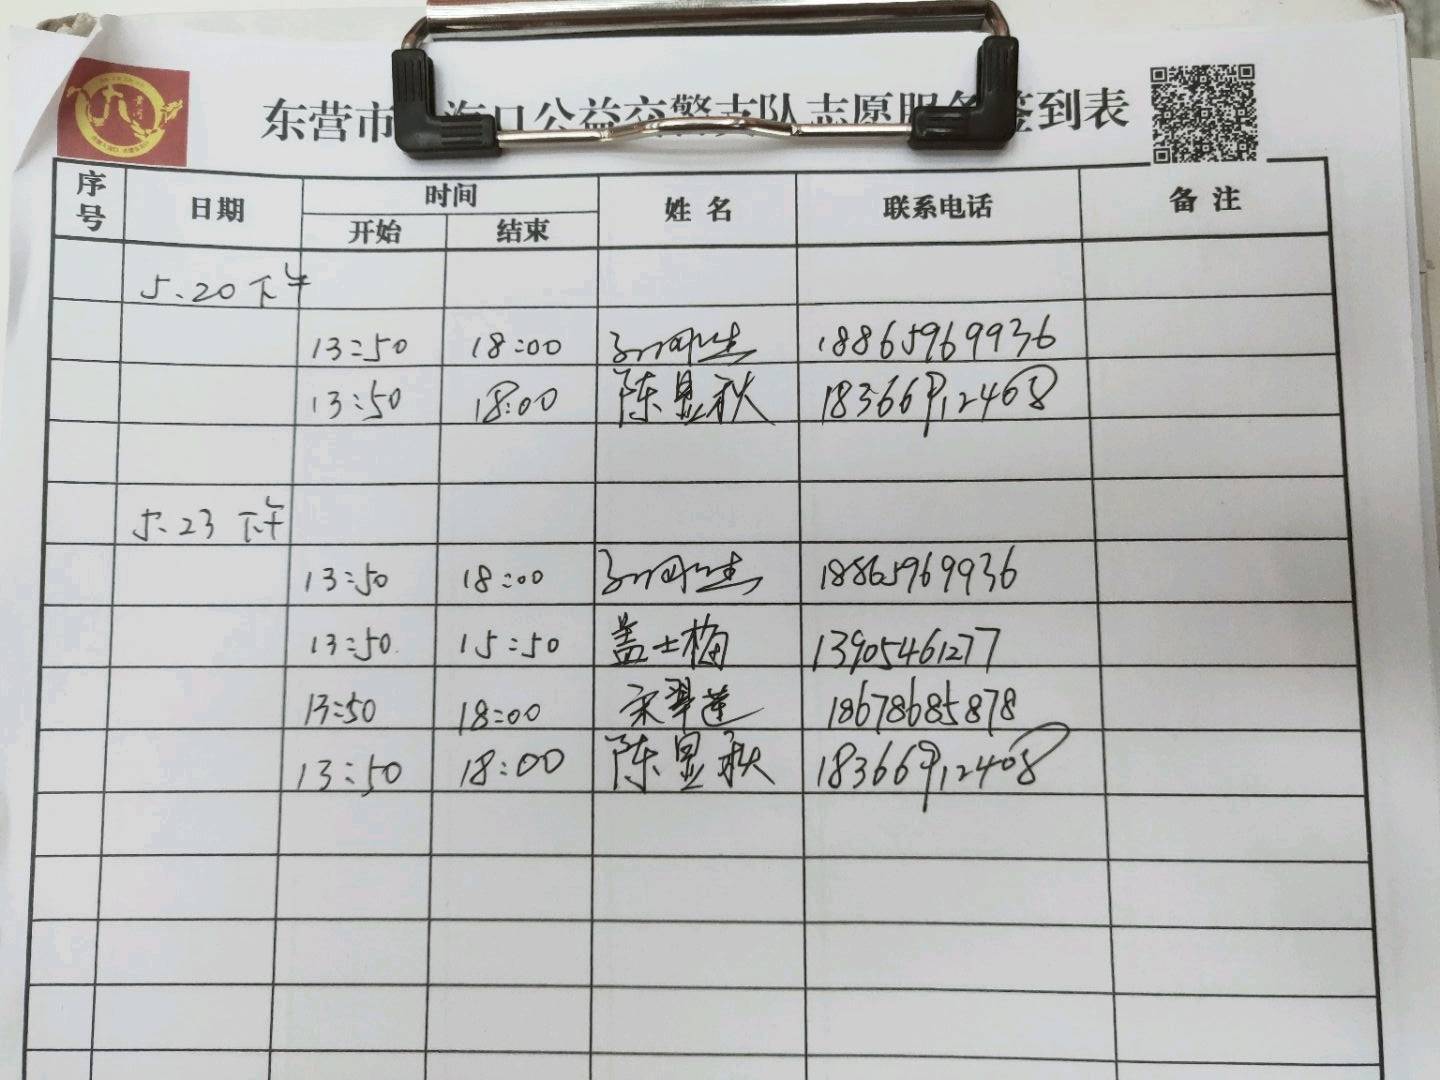 东营市 海口公益交警支队志愿服务签到表
序号 日期 时间 姓名 联系电话 备注
开始 结束
5.20 下午
13:50 18:00 18865969936
13:50 18:00 陈显秋 18366912408
5.23 下午
13:50 18:00 18865969936
13:50 15:50 盖士梅 13905461277
13:50 18:00 宋翠莲 18678685878
13:50 18:00 陈显秋 18366912408